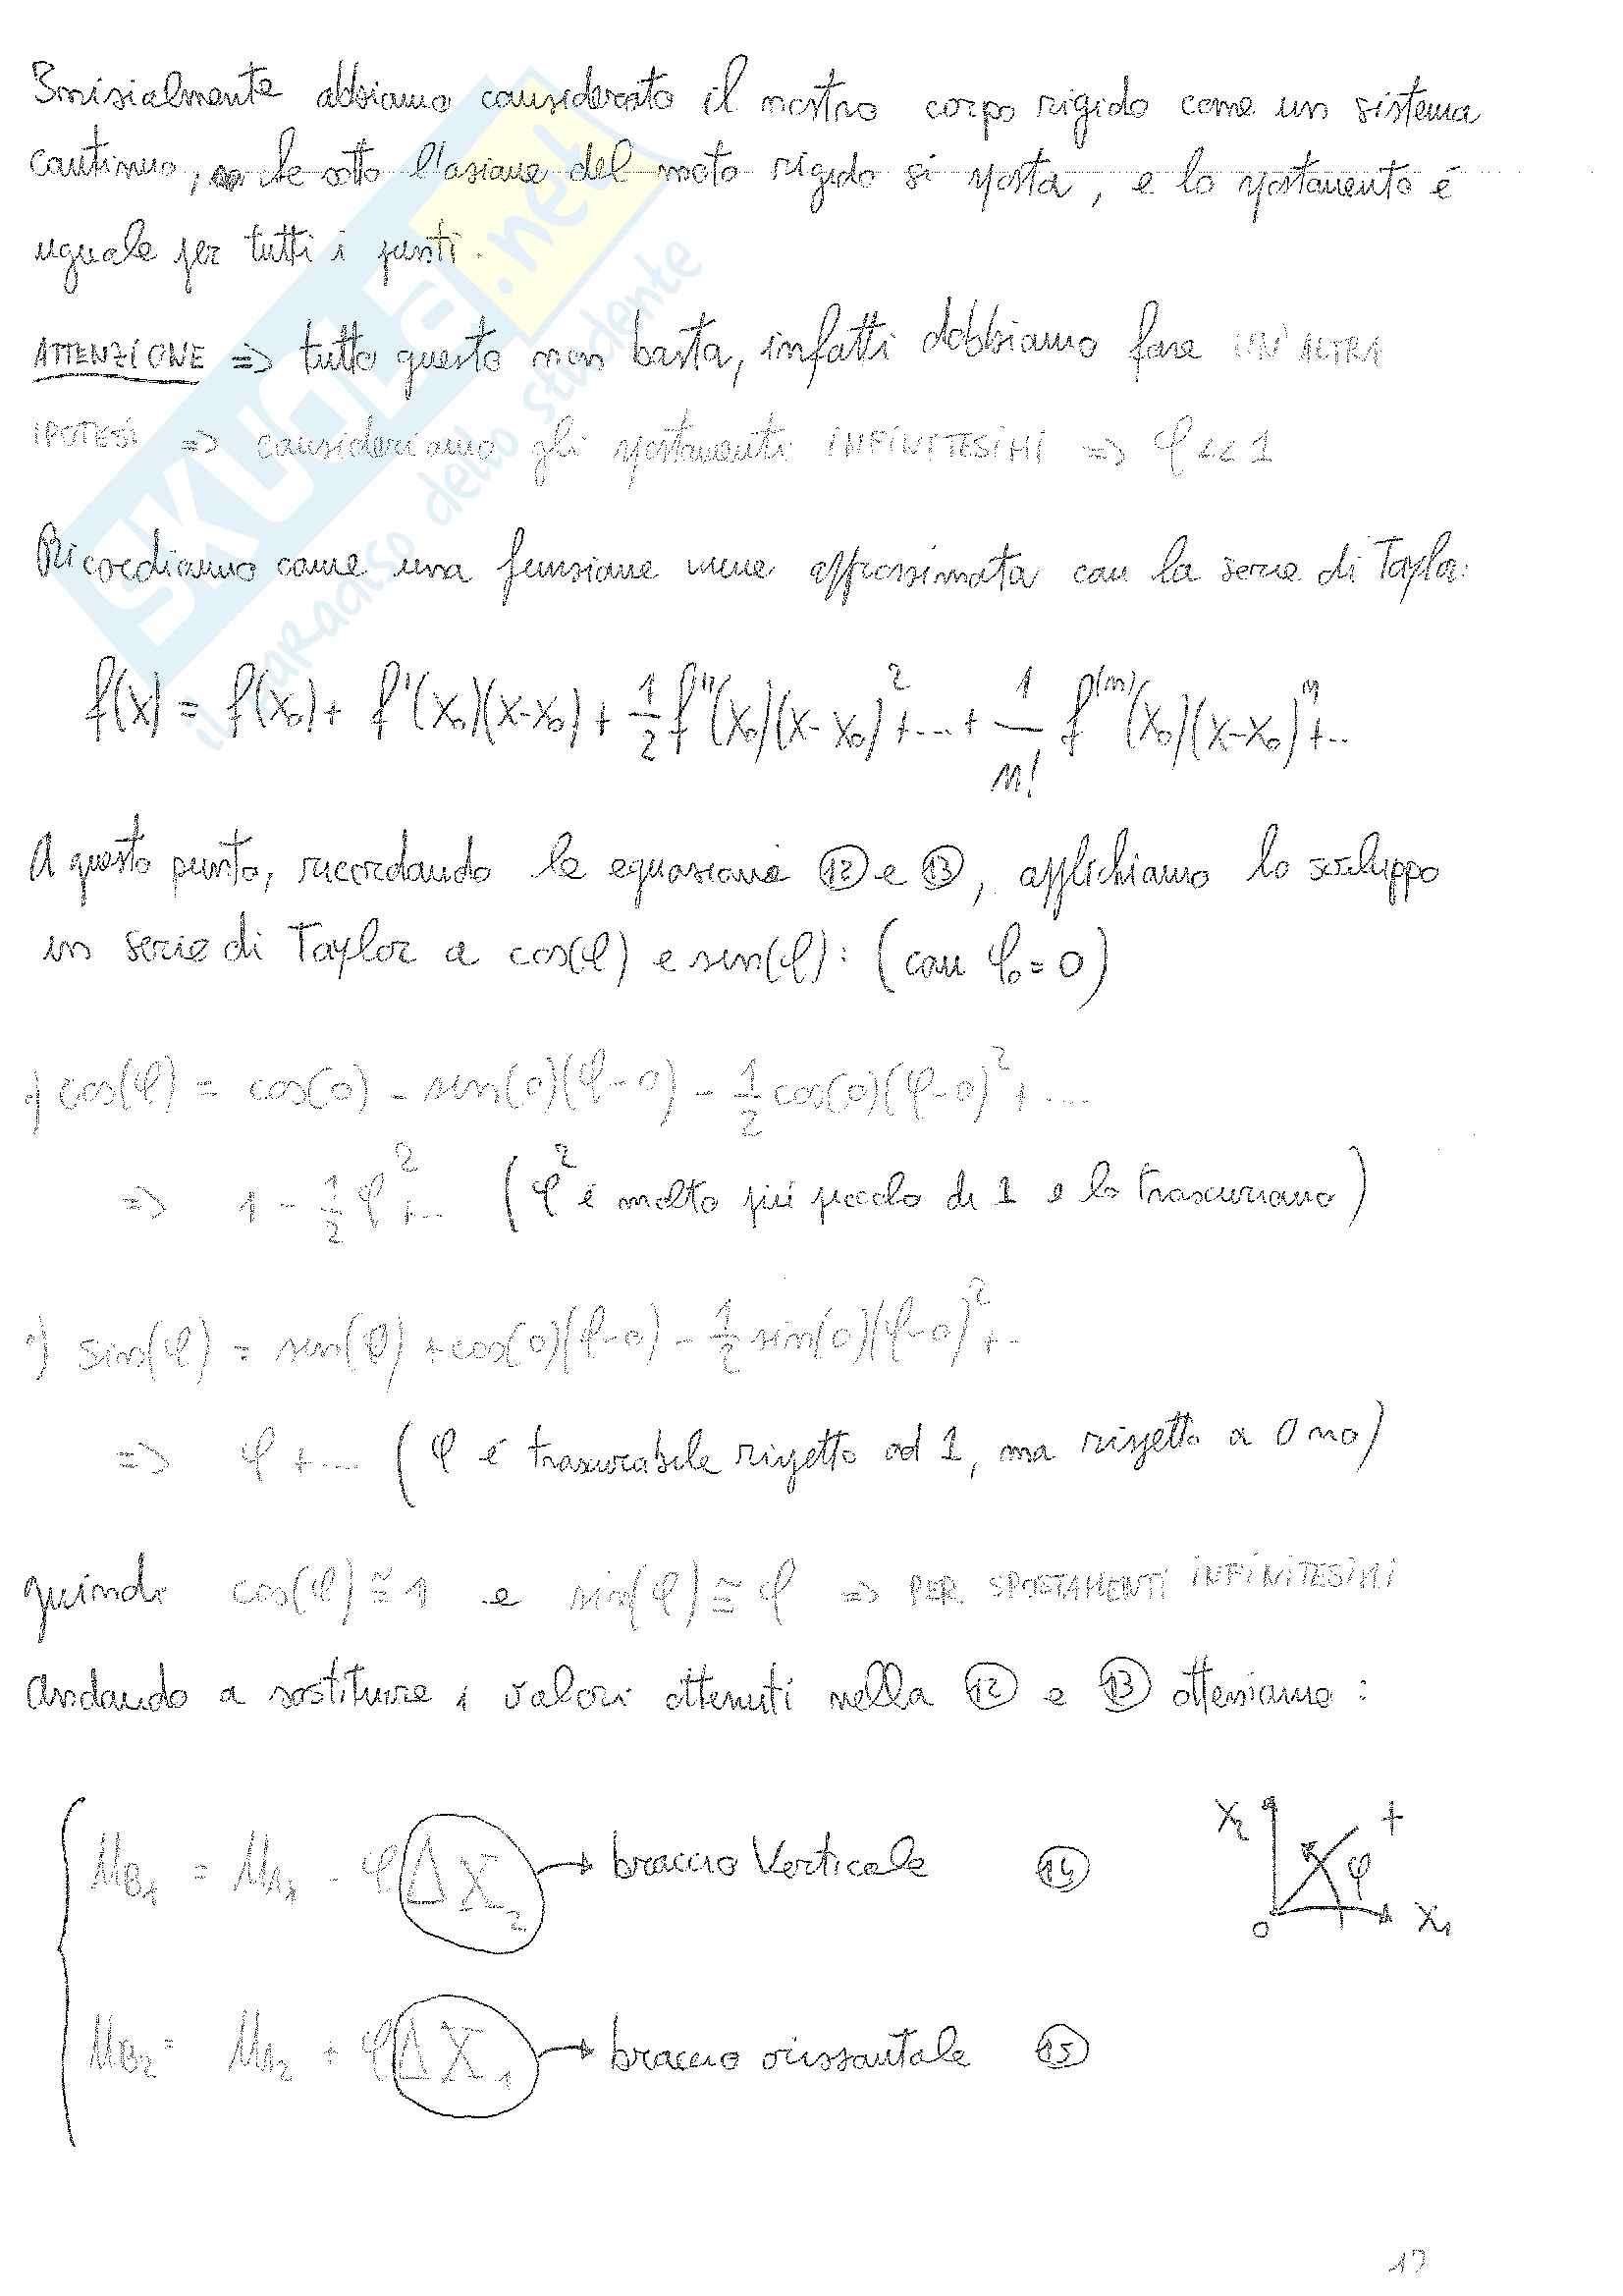 Inizialmente abbiamo considerato il nostro corpo rigido come un sistema
continuo, che sotto l'azione del moto rigido si sposta, e lo spostamento è
uguale per tutti i punti.
ATTENZIONE => tutto questo non basta, infatti dobbiamo fare UN'ALTRA
IPOTESI => consideriamo gli spostamenti INFINITESIMI => φ<<1
Ricordiamo come una funzione viene approssimata con la serie di Taylor:
f(x) = f(x₀) + f'(x₀)(x-x₀) + 1/2 f''(x₀)(x-x₀)² + ... + 1/n! f⁽ⁿ⁾(x₀)(x-x₀)ⁿ + ..
A questo punto, ricordando le equazioni 12 e 13, applichiamo lo sviluppo
in serie di Taylor a cos(φ) e sen(φ): (con φ₀ = 0)
•) cos(φ) = cos(0) - sen(0)(φ-0) - 1/2 cos(0)(φ-0)² + ...
=> 1 - 1/2 φ² + ... (φ² è molto più piccolo di 1 e lo trascuriamo)
•) sin(φ) = sen(0) + cos(0)(φ-0) - 1/2 sin(0)(φ-0)² + ..
=> φ + ... (φ è trascurabile rispetto ad 1, ma rispetto a 0 no)
quindi cos(φ) ≅ 1 e sin(φ) ≅ φ => PER SPOSTAMENTI INFINITESIMI
Andando a sostituire i valori ottenuti nella 12 e 13 otteniamo:
u_B1 = u_A1 - φ ΔX₂ → braccio verticale 14
X₂ + φ O X₁
u_B2 = u_A2 + φ ΔX₁ → braccio orizzontale 15
SKUOLA.net
il paradiso dello studente